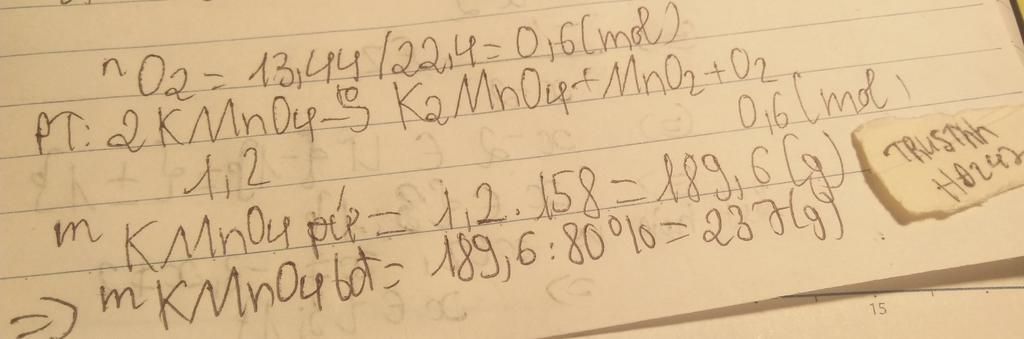 nO2 = 13,44/22,4 = 0,6 (mol)
PT: 2KMnO4 -t°-> K2MnO4 + MnO2 + O2
1,2 0,6 (mol)
mKMnO4 pứ = 1,2.158 = 189,6 (g)
=> mKMnO4 bột = 189,6:80% = 237(g)
TRUSTNN
H8242
15